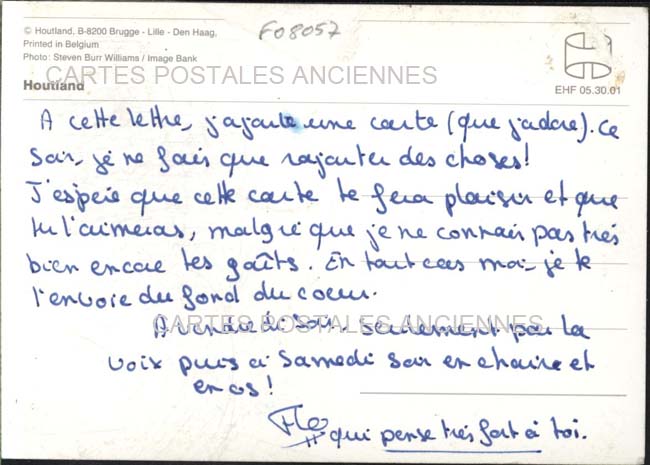 © Houtland, B-8200 Brugge - Lille - Den Haag,
Printed in Belgium
Photo: Steven Burr Williams / Image Bank
Houtland
F08057
EHF 05.30.01
CARTES POSTALES ANCIENNES
A cette lettre, j'ajoute une carte (que j'adore). Ce
soir, je ne fais que rajouter des choses!
J'espère que cette carte te fera plaisir et que
tu l'aimeras, malgré que je ne connais pas très
bien encore tes goûts. En tout cas moi, je te
l'envoie du fond du coeur.
A vendredi soir. seulement par la
CARTES POSTALES ANCIENNES
voix puis à samedi soir en chaire et
en os!
Flo qui pense très fort à toi.